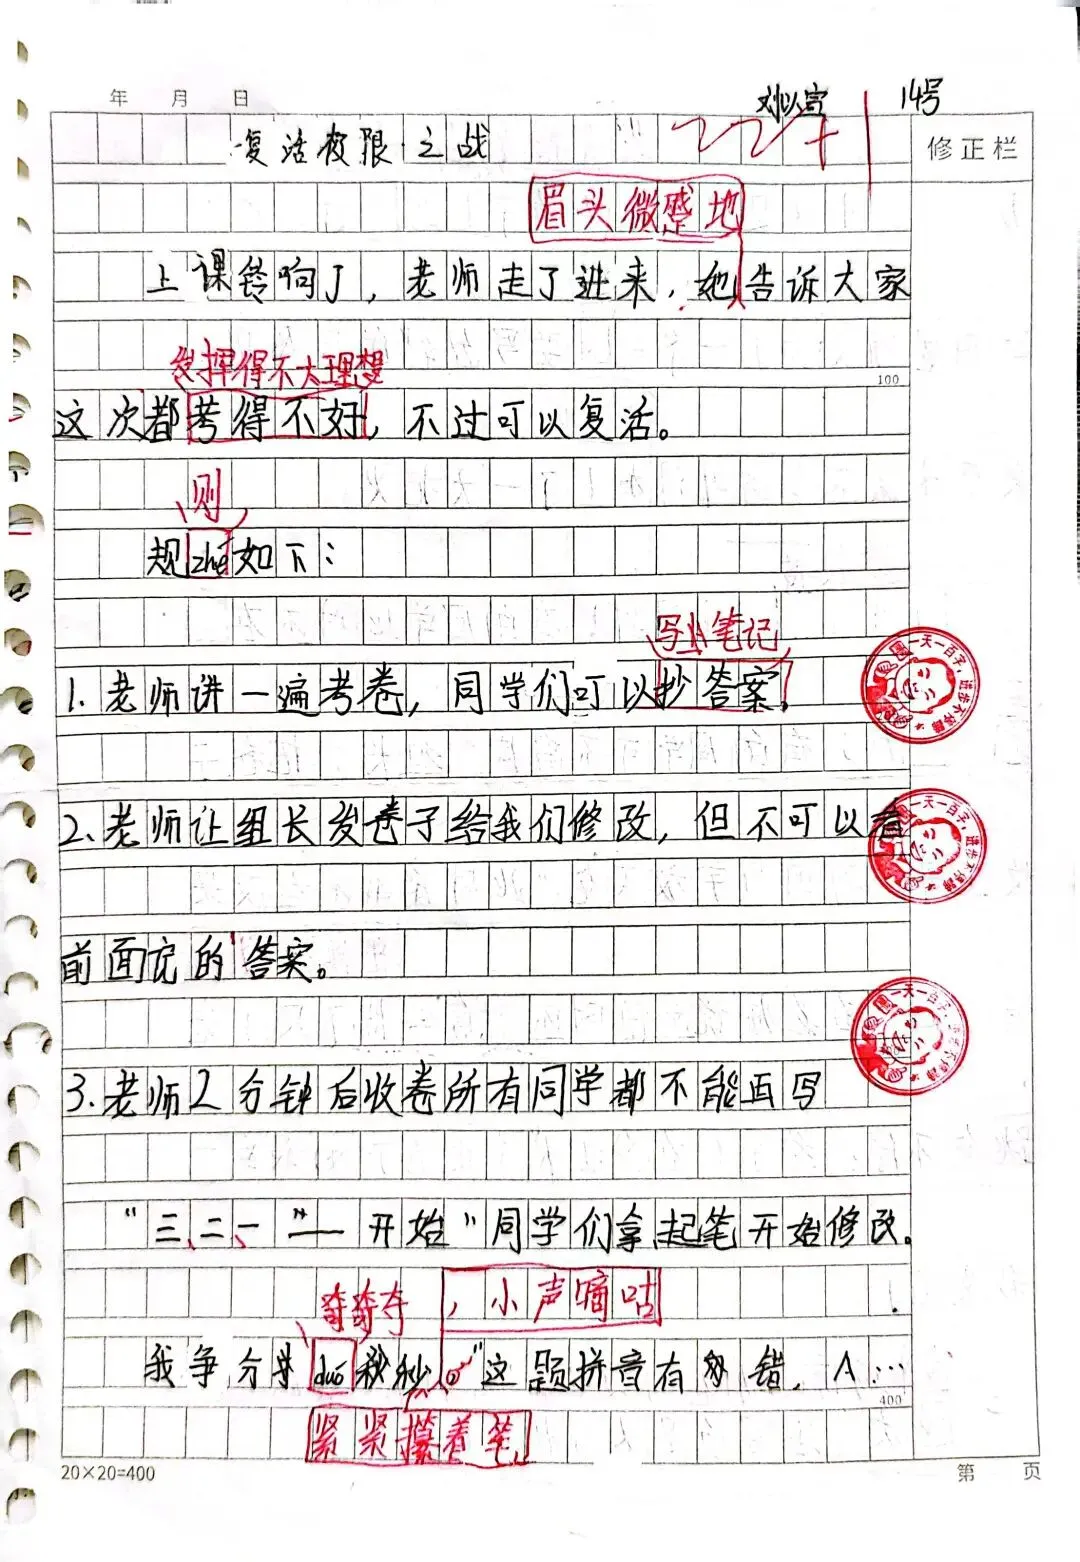 年 月 日
刘以宣 14号
复活权限之战
22+
修正栏
眉头微蹙地
上课铃响了，老师走了进来，她告诉大家
发挥得不太理想
100
这次都考得不好，不过可以复活。
则
规zhé如下：
写 笔记
1.老师讲一遍考卷，同学们可以抄答案，
2.老师让组长发卷子给我们修改，但不可以看
前面记的答案。
3.老师2分钟后收卷所有同学都不能再写
“三、二、一”——开始”同学们拿起笔开始修改。
夺夺夺 ，小声嘀咕
我争分 duó秒秒。“这题拼音有 错，A…
400
紧紧攥着笔，
20×20=400
第 页
一天一百字，进步不停蹄
一天一百字，进步不停蹄
一天一百字，进步不停蹄